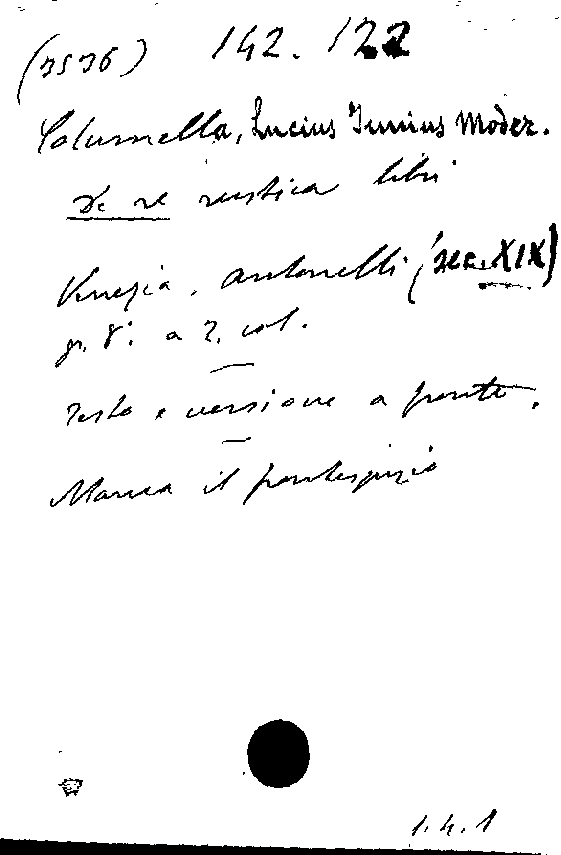 (3536) 142.122
Columella, Lucius Iunius Moder.
De re rustica libri
Venezia, Antonelli (sec. XIX)
gr. 8°. a 2. col.
Testo e versione a fronte.
Manca il frontespizio
1.4.1